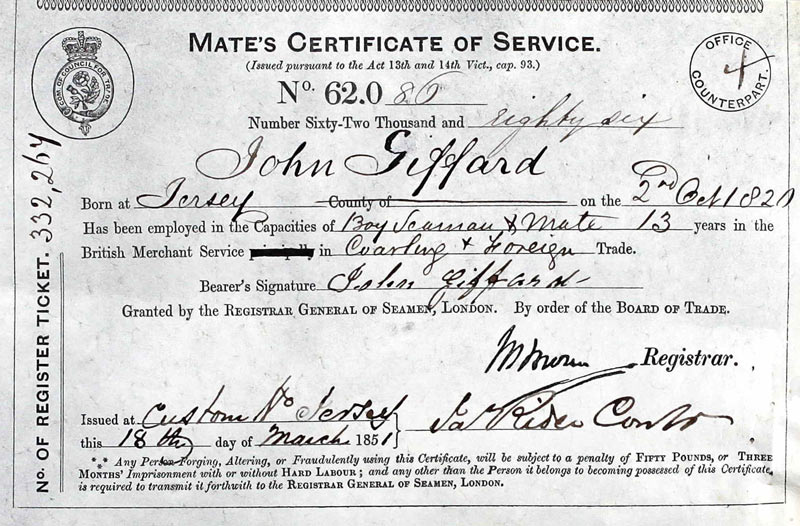 MATE'S CERTIFICATE OF SERVICE.
(Issued pursuant to the Act 13th and 14th Vict., cap. 93.)
OFFICE
4
COUNTERPART.
No. 62.0 86
Number Sixty-Two Thousand and eighty six
John Giffard
Born at Jersey County of on the 2nd Oct 1820
Has been employed in the Capacities of Boy Seaman & Mate 13 years in the
British Merchant Service principally in Coasting & Foreign Trade.
Bearer's Signature John Giffard
Granted by the REGISTRAR GENERAL OF SEAMEN, LONDON. By order of the BOARD OF TRADE.
Registrar.
Issued at Custom Ho Jersey
this 18th day of March 1851
*** Any Person Forging, Altering, or Fraudulently using this Certificate, will be subject to a penalty of FIFTY POUNDS, or THREE
MONTHS' Imprisonment with or without HARD LABOUR; and any other than the Person it belongs to becoming possessed of this Certificate,
is required to transmit it forthwith to the REGISTRAR GENERAL OF SEAMEN, LONDON.
No. OF REGISTER TICKET. 332,264
COM. OF COUNCIL FOR TRADE